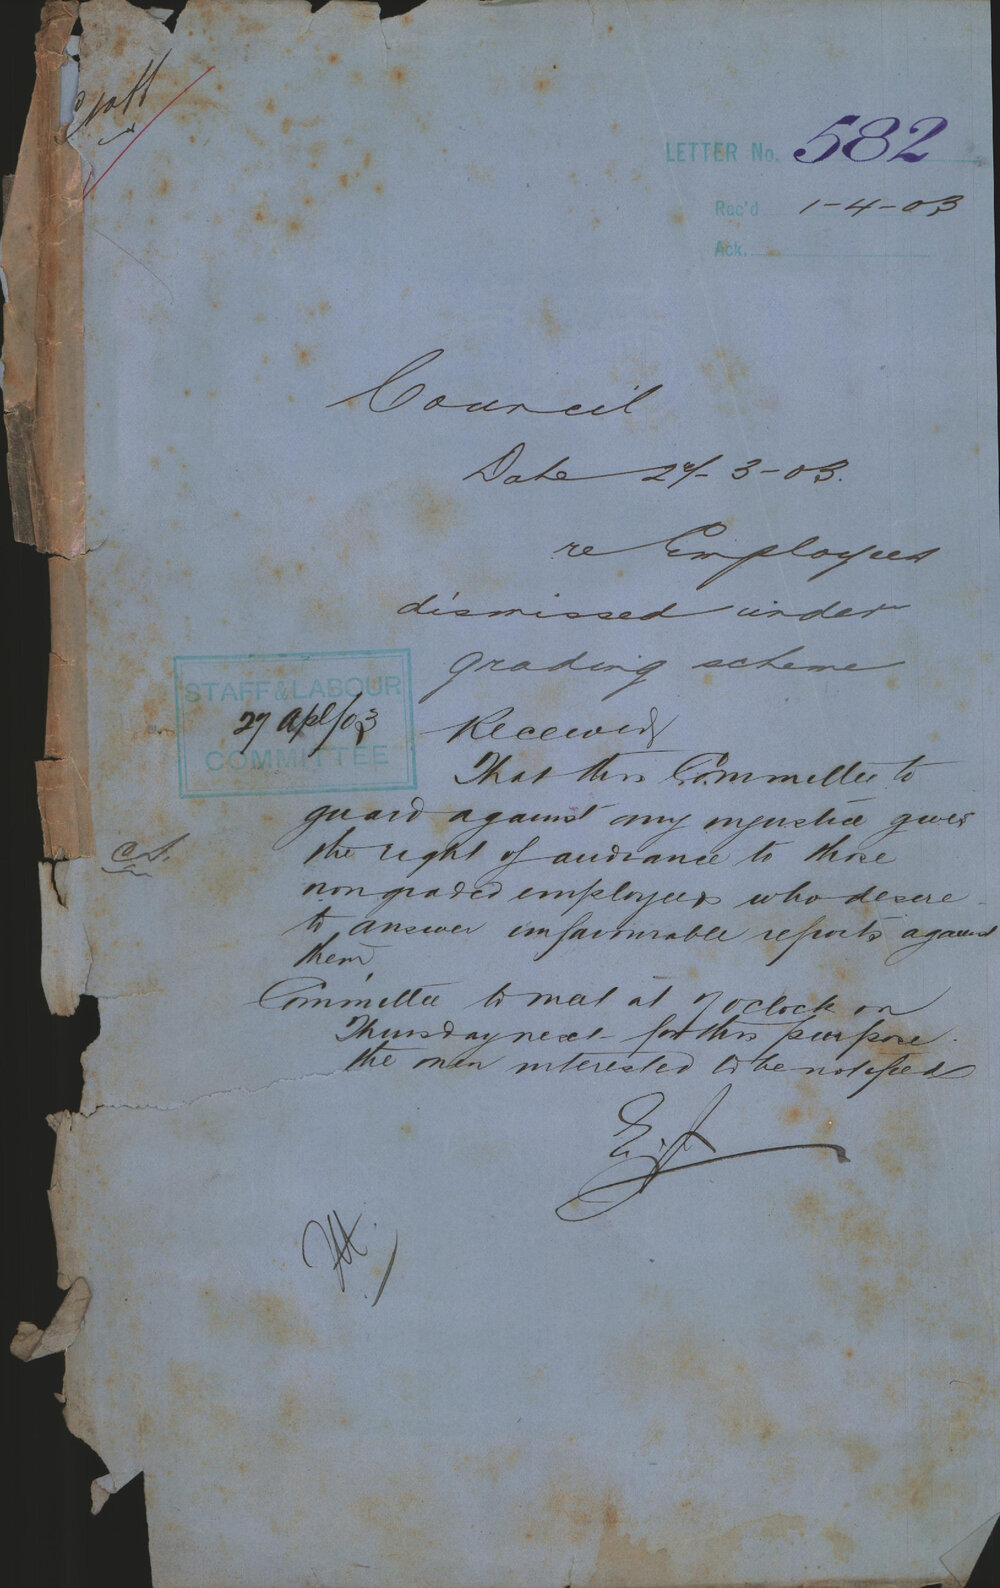 Staff
LETTER No. 582
Rec'd 1-4-03
Ack.
Council
Date 24-3-03.
re Employees
dismissed under
grading scheme
STAFF & LABOUR
27 Apl/03
COMMITTEE
Received
That this Committee to
guard against any injustice gives
the right of audiance to those
non graded employees who desire
to answer unfavourable reports against
them
Committee to meet at 7 oclock on
Thursday next for this purpose.
the men interested to be notified